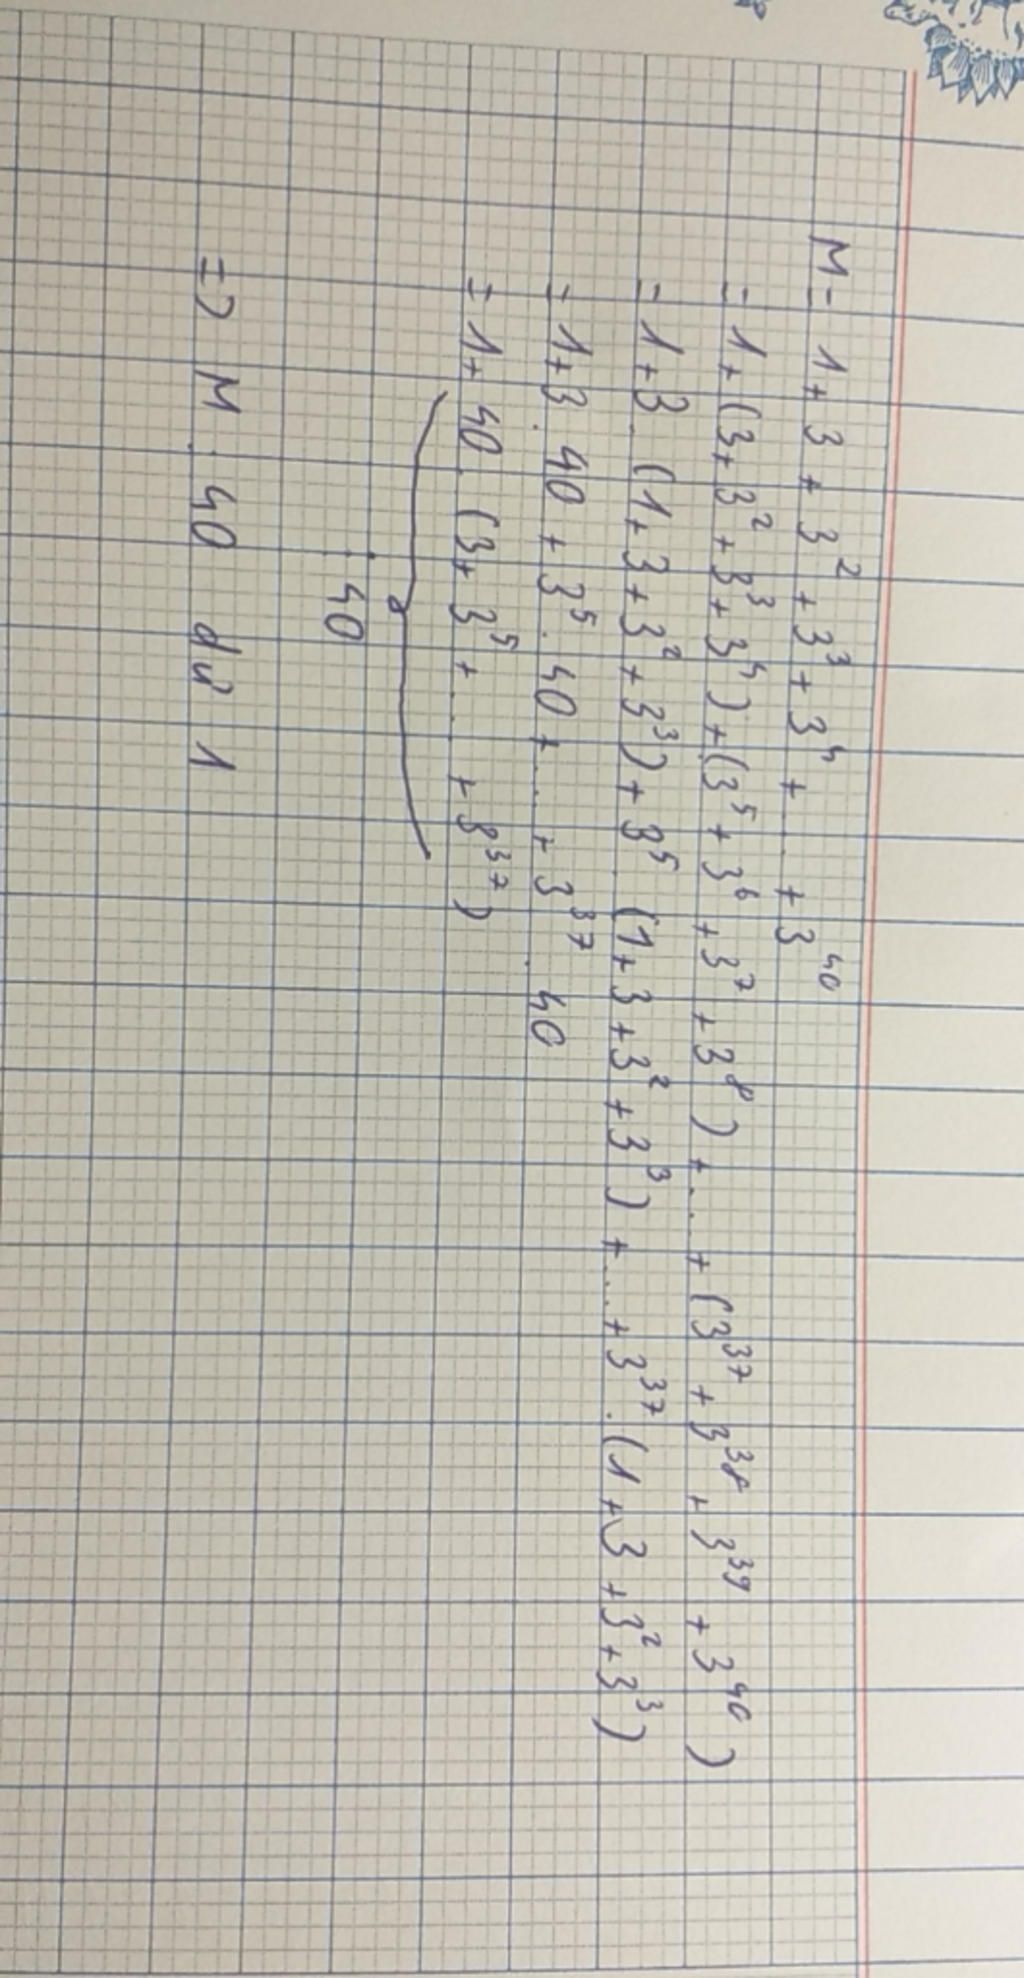 M = 1 + 3 + 3² + 3³ + 3⁴ + ... + 3⁴⁰
= 1 + (3 + 3² + 3³ + 3⁴) + (3⁵ + 3⁶ + 3⁷ + 3⁸) + ... + (3³⁷ + 3³⁸ + 3³⁹ + 3⁴⁰)
= 1 + 3 . (1 + 3 + 3² + 3³) + 3⁵ . (1 + 3 + 3² + 3³) + ... + 3³⁷ . (1 + 3 + 3² + 3³)
= 1 + 3 . 40 + 3⁵ . 40 + ... + 3³⁷ . 40
= 1 + 40 . (3 + 3⁵ + ... + 3³⁷)
⋮ 40
=> M : 40 dư 1